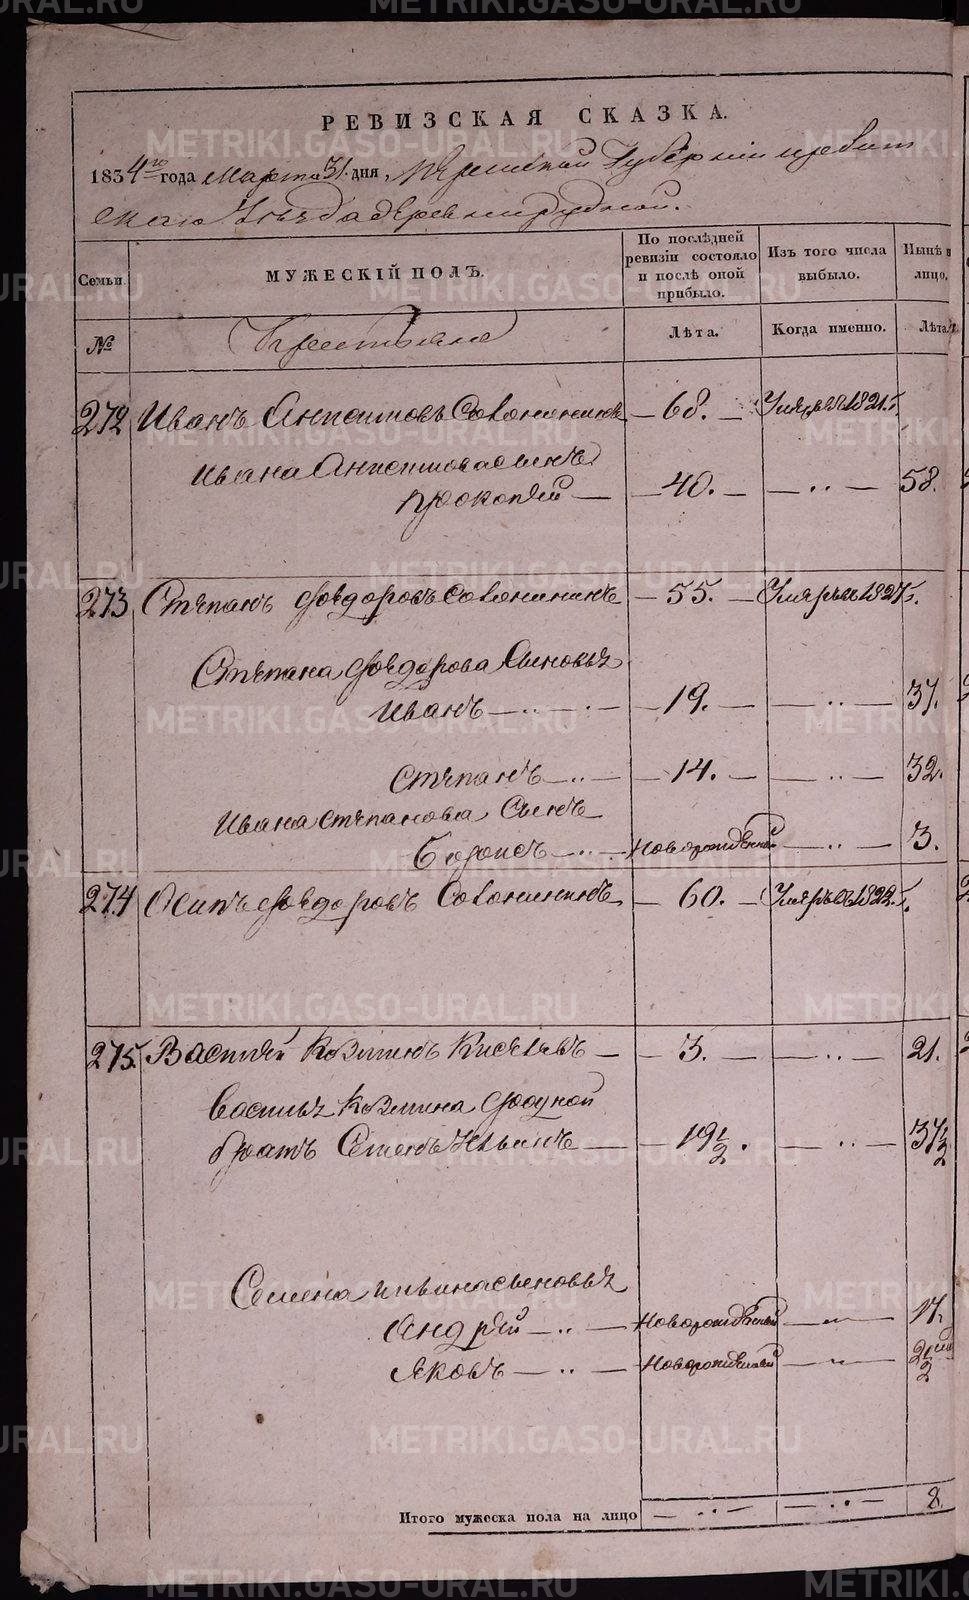 РЕВИЗСКАЯ СКАЗКА.
1834го года марта 31. дня, Пермской Губернии Ирбит
скаго Уезда деревни Рудной.
Семьи.
МУЖЕСКІЙ ПОЛЪ.
По послѣдней ревизіи состояло и послѣ оной прибыло.
Изъ того числа выбыло.
Нынѣ на лицо.
№
Крестьяне
Лѣта.
Когда именно.
Лѣта.
272 Иванъ Антиповъ Соβонининъ — 68. — Умръвъ 1821.г.
Ивана Антипова сынъ
Прокопей — — 40. — — ·· — 58.
273 Степанъ Федоровъ Совонининъ — 55. — Умръвъ 1827г.
Степана Федорова Сыновья
Иванъ — ·· — — 19. — — ·· — 37.
Степанъ — ·· — — 14. — — ·· — 32.
Ивана степанова Сынъ
Борисъ — ·· — Новорожденный — ·· — 3.
274 Осипъ Федоровъ Совонининъ — 60. — Умръвъ 1822.г.
275. Василей Козминъ Киселевъ — — 3. — — ·· — 21.
Василья Козмина двоуной
братъ Семенъ Ильинъ — — 19 1/2. — ·· — 37 1/2
Семена ильина сыновья
Андрей — ·· — Новорожденный — ·· — 17.
Яковъ — ·· — Новорожденный — ·· — 2 1/2
Итого мужеска пола на лицо — ·· — — ·· — 8.
METRIKI.GASO-URAL.RU